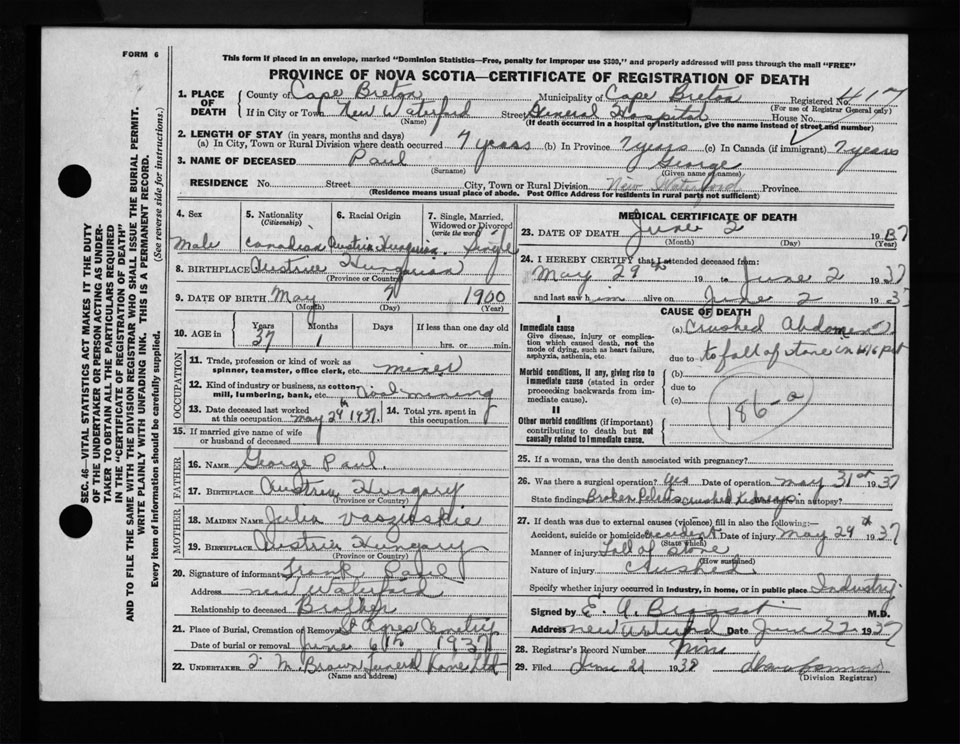 FORM 6
This form if placed in an envelope, marked "Dominion Statistics—Free, penalty for improper use $300," and properly addressed will pass through the mail "FREE"
PROVINCE OF NOVA SCOTIA—CERTIFICATE OF REGISTRATION OF DEATH
SEC. 46—VITAL STATISTICS ACT MAKES IT THE DUTY
OF THE UNDERTAKER OR PERSON ACTING AS UNDER-
TAKER TO OBTAIN ALL THE PARTICULARS REQUIRED
IN THE "CERTIFICATE OF REGISTRATION OF DEATH"
AND TO FILE THE SAME WITH THE DIVISION REGISTRAR WHO SHALL ISSUE THE BURIAL PERMIT.
WRITE PLAINLY WITH UNFADING INK. THIS IS A PERMANENT RECORD.
Every item of information should be carefully supplied. (See reverse side for instructions.)
1. PLACE OF DEATH County of Cape Breton Municipality of Cape Breton Registered No. 417
(For use of Registrar General only)
If in City or Town New Waterford Street General Hospital House No.
(Name) (If death occurred in a hospital or institution, give the name instead of street and number)
2. LENGTH OF STAY (in years, months and days)
(a) In City, Town or Rural Division where death occurred 7 years (b) In Province 7 years (c) In Canada (if immigrant) 7 years
3. NAME OF DECEASED Paul George
(Surname) (Given name or names)
RESIDENCE No. Street City, Town or Rural Division New Waterford Province
(Residence means usual place of abode. Post Office Address for residents in rural parts not sufficient)
4. Sex Male
5. Nationality (Citizenship) Canadian
6. Racial Origin Austria Hungarian
7. Single, Married, Widowed or Divorced (write the word) Single
8. BIRTHPLACE Austria Hungarian
(Province or Country)
9. DATE OF BIRTH May 7 1900
(Month) (Day) (Year)
10. AGE in Years 37 Months 1 Days If less than one day old hrs. or min.
OCCUPATION
11. Trade, profession or kind of work as spinner, teamster, office clerk, etc. miner
12. Kind of industry or business, as cotton mill, lumbering, bank, etc. Coal mining
13. Date deceased last worked at this occupation May 29th 1937
14. Total yrs. spent in this occupation
15. If married give name of wife or husband of deceased
FATHER
16. NAME George Paul.
17. BIRTHPLACE Austria Hungary
(Province or Country)
MOTHER
18. MAIDEN NAME Julia
19. BIRTHPLACE Austria Hungary
(Province or Country)
20. Signature of informant Frank Paul
Address New Waterford
Relationship to deceased Brother
21. Place of Burial, Cremation or Removal St Agnes Cemetry
Date of burial or removal June 6th 1937
22. UNDERTAKER T. M. Brown Funeral Home Ltd
(Name and address)
MEDICAL CERTIFICATE OF DEATH
23. DATE OF DEATH June 2 1937
(Month) (Day) (Year)
24. I HEREBY CERTIFY that I attended deceased from:
May 29th 19 to June 2 1937
and last saw him alive on June 2 193
CAUSE OF DEATH
I
Immediate cause
Give disease, injury or complication which caused death, not the mode of dying, such as heart failure, asphyxia, asthenia, etc.
(a) Crushed Abdomen
due to fall of stone in No16 pit
Morbid conditions, if any, giving rise to immediate cause (stated in order proceeding backwards from immediate cause).
(b)
due to
(c)
186-a
II
Other morbid conditions (if important) contributing to death but not causally related to immediate cause.
25. If a woman, was the death associated with pregnancy?
26. Was there a surgical operation? Yes Date of operation May 31st 1937
State findings Broken Pelvis crushed Kidney an autopsy?
27. If death was due to external causes (violence) fill in also the following:
Accident, suicide or homicide accident Date of injury May 29th 1937
(State which)
Manner of injury Fall of Stone
(How sustained)
Nature of injury Crushed
Specify whether injury occurred in industry, in home, or in public place Industry
Signed by E. A. M.D.
Address New Waterford Date June 22 1937
28. Registrar's Record Number
29. Filed June 22 193
(Division Registrar)